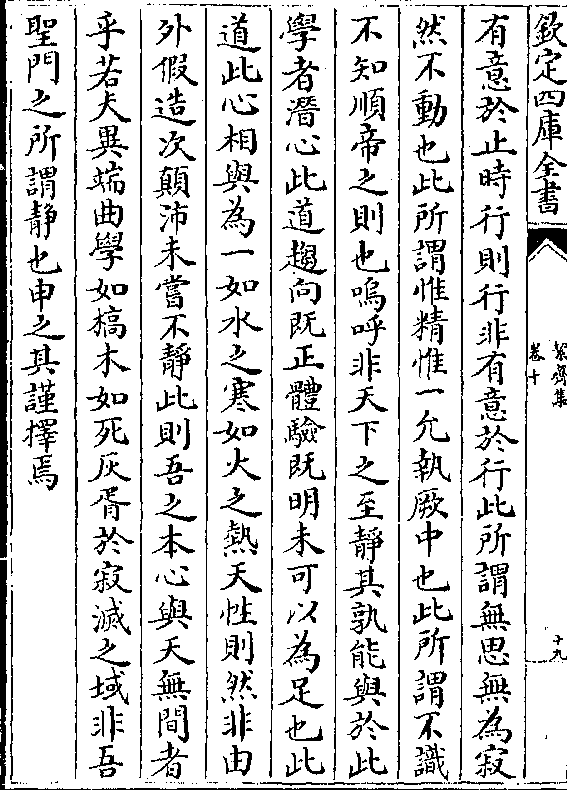 欽定四庫全書
絜齋集
卷十
十九
有意於止時行則行非有意於行此所謂無思無為寂
然不動也此所謂惟精惟一允執厥中也此所謂不識
不知順帝之則也嗚呼非天下之至靜其孰能與於此
學者潛心此道趨向既正體驗既明未可以為足也此
道此心相與為一如水之寒如火之熱天性則然非由
外假造次顛沛未嘗不靜此則吾之本心與天無間者
乎若夫異端曲學如槁木如死灰胥於寂滅之域非吾
聖門之所謂靜也申之其謹擇焉